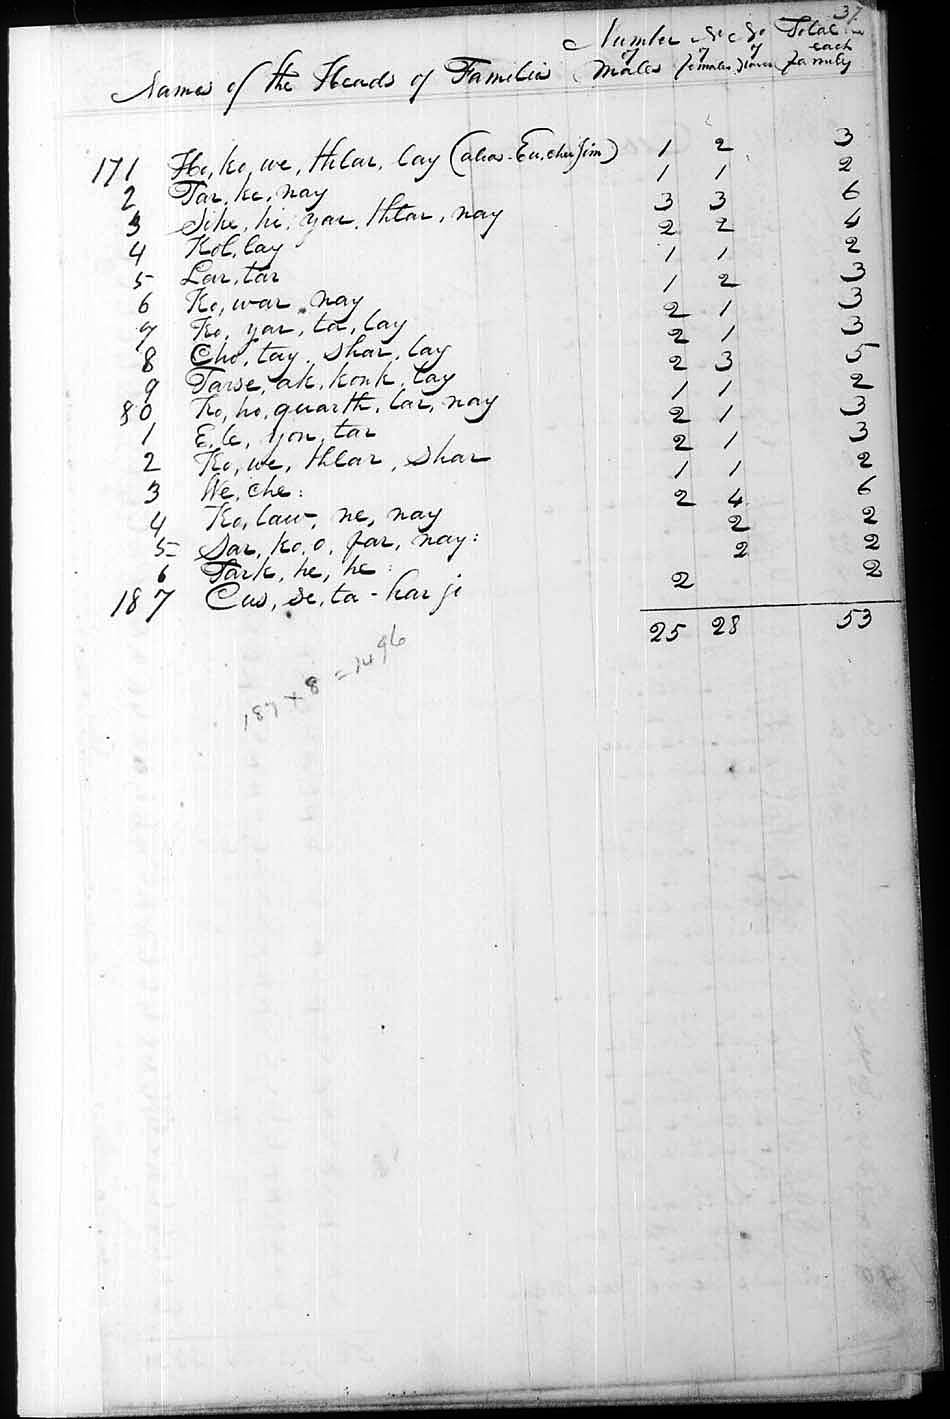 37.
Names of the Heads of Families Number of Males No of females No of Slaves Total in each family
171 Ho, ko, we, thlar, lay (alias Eu, cher Jim) 1 2 3
2 Tar, ke, nay 1 1 2
3 Sihe, hi, yar, thlar, nay 3 3 6
4 Kol, lay 2 2 4
5 Lar, tar 1 1 2
6 Ko, war, nay 1 2 3
7 Ko, yar, to, lay 2 1 3
8 Cho, tay, Shar, lay 2 1 3
9 Tarse, ak, konk, lay 2 3 5
80 Ko, ho, quarth, lar, nay 1 1 2
1 E, le, yon, tar 2 1 3
2 Ko, we, thlar, Shar 2 1 3
3 We, che: 1 1 2
4 Ko, law, ne, nay 2 4 6
5 Sar, ko, o, far, nay: 2 2
6 Tark, he, he: 2 2
187 Cus, se, ta - har jo 2 2
25 28 53
187 x 8 = 1496